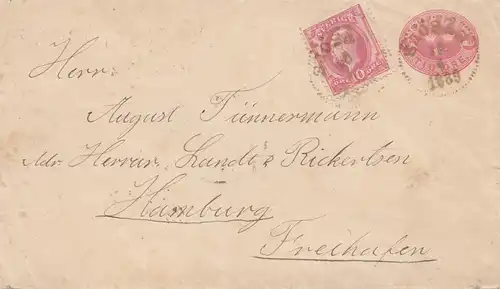 SVERIGE
10
TIO ÖRE
1889
Herr
August Tünnermann
Adr. Herrar Landt & Rickertsen
Hamburg
Freihafen